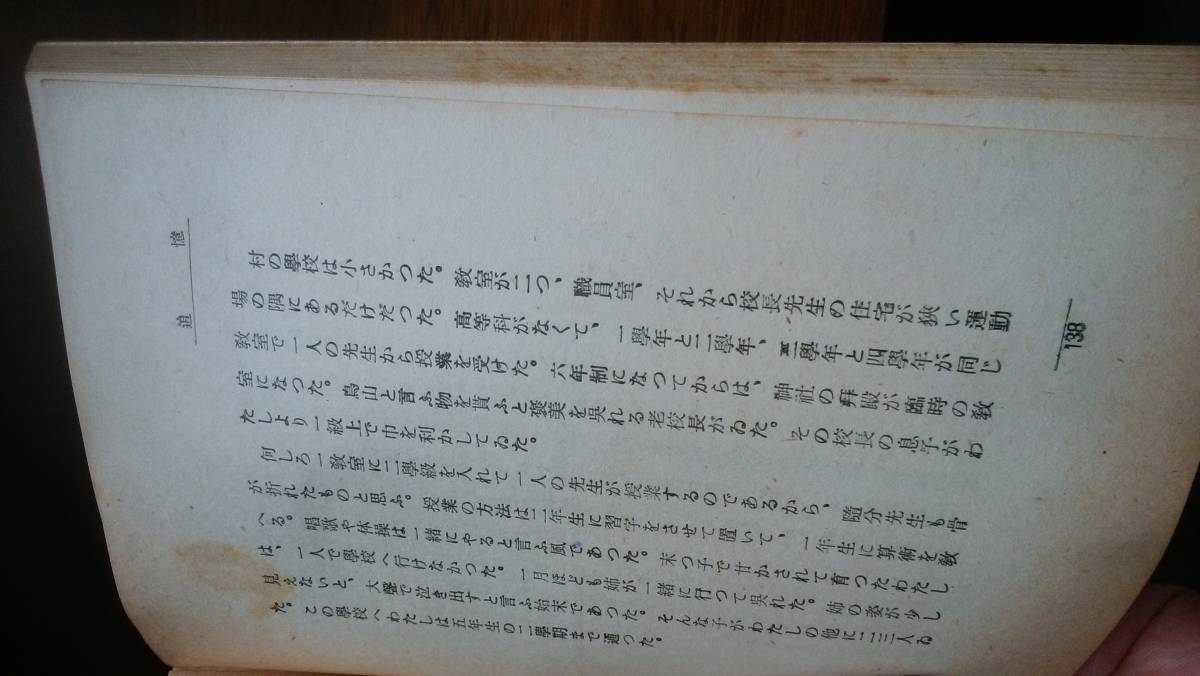 追憶
138
村の學校は小さかつた。敎室が二つ、職員室、それから校長先生の住宅が狹い運動
場の隅にあるだけだつた。高等科がなくて、一學年と二學年、三學年と四學年が同じ
敎室で一人の先生から授業を受けた。六年制になつてからは、神社の拜殿が臨時の敎
室になつた。鳥山と言ふ物を貰ふと褒美を吳れる老校長がゐた。その校長の息子がわ
たしより一級上で巾を利かしてゐた。
何しろ一敎室に二學級を入れて一人の先生が授業するのであるから、隨分先生も骨
が折れたものと思ふ。授業の方法は二年生に習字をさせて置いて、一年生に算術を敎
へる。唱歌や体操は一緖にやると言ふ風であつた。末つ子で甘かされて育つたわたし
は、一人で學校へ行けなかつた。一月ほども姉が一緖に行つて吳れた。姉の姿が少し
見えないと、大聲で泣き出すと言ふ始末であつた。そんな子がわたしの他に二三人ゐ
た。この學校へわたしは五年生の二學期まで通つた。